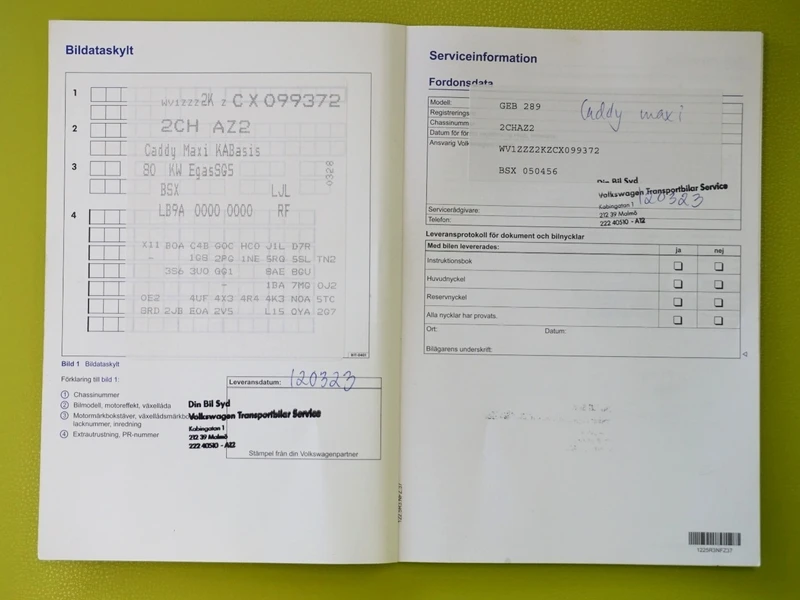 Bildataskylt
1
WV1ZZZ2K Z CX099372
2
2CH AZ2
Caddy Maxi KABasis
3
80 KW EgasSG5
0328
BSX LJL
4
LB9A 0000 0000 RF
X11 B0A C4B G0C HCD J1L D7R
- 1G8 2PG 1NE SRG 5SL TN2
3S6 3U0 GG1 8AE 8GU
- 1BA 7MG 0J2
0E2 4UF 4X3 4R4 4K3 N0A 5TC
BRD 2JB E0A 2V5 L15 0YA 2G7
Bild 1 Bildataskylt
Förklaring till bild 1:
1 Chassinummer
2 Bilmodell, motoreffekt, växellåda
3 Motormärkbokstäver,
lacknummer, inredning
4 Extrautrustning, PR-nummer
Leveransdatum: 120323
Din Bil Syd
Volkswagen Transportbilar Service
Kabingatan 1
212 39 Malmö
222 40510 - A12
Stämpel från din Volkswagenpartner
Serviceinformation
Fordonsdata
Modell: GEB 289 Caddy maxi
Registrerings
Chassinumm 2CHAZ2
Datum för för
Ansvarig Volk WV1ZZZ2KZCX099372
BSX 050456
Din Bil Syd
Volkswagen Transportbilar Service
120323
Kabingatan 1
212 39 Malmö
222 40510 - A12
Servicerådgivare:
Telefon:
Leveransprotokoll för dokument och bilnycklar
Med bilen levererades: ja nej
Instruktionsbok
Huvudnyckel
Reservnyckel
Alla nycklar har provats.
Ort: Datum:
Bilägarens underskrift:
1225R3NFZ37